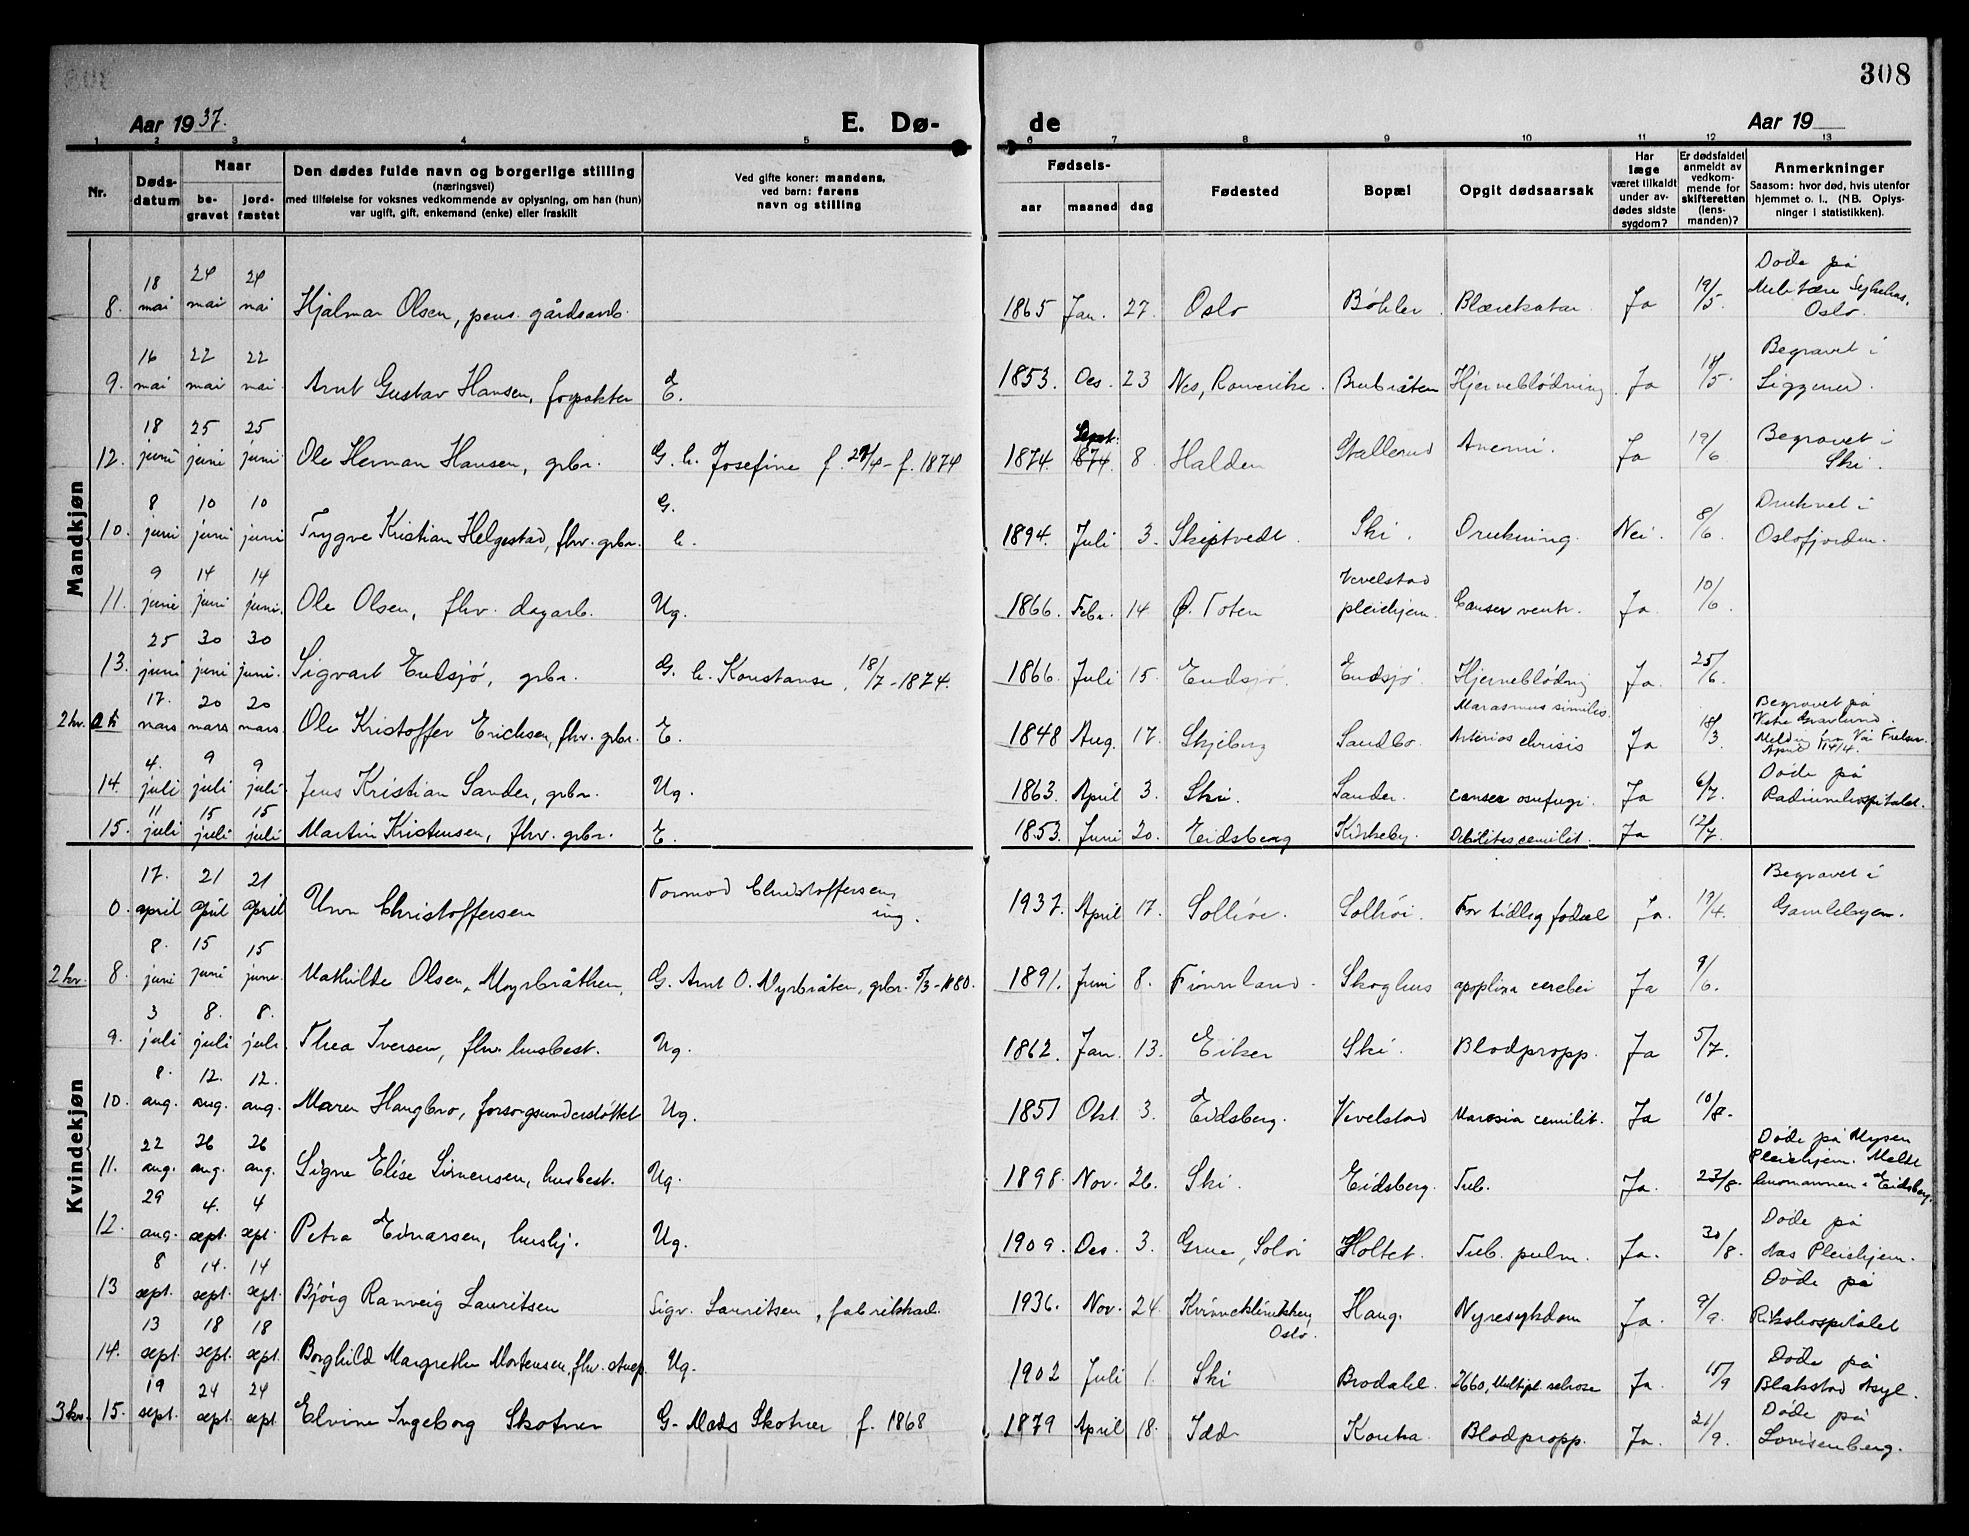 308
Aar 1937.
E. Dø-
de
Aar 19
1 2 3 4 5 6 7 8 9 10 11 12 13
Nr.
Døds-
datum
Naar
be-
gravet
jord-
fæstet
Den dødes fulde navn og borgerlige stilling
(næringsvei)
med tilføielse for voksnes vedkommende av oplysning, om han (hun)
var ugift, gift, enkemand (enke) eller fraskilt
Ved gifte koner: mandens,
ved barn: farens
navn og stilling
Fødsels-
aar maaned dag
Fødested
Bopæl
Opgit dødsaarsak
Har
læge
været tilkaldt
under av-
dødes sidste
sygdom?
Er dødsfaldet
anmeldt av
vedkom-
mende for
skifteretten
(lens-
manden)?
Anmerkninger
Saasom: hvor død, hvis utenfor
hjemmet o. l.. (NB. Oplys-
ninger i statistikken).
Mandkjøn
8. 18 mai 24 mai 24 mai Hjalmar Olsen, pens. gårdsarb. 1865 Jan. 27. Oslo Bøhler Blærekatar. Ja 19/5. Døde på
Militære Sykehus,
Oslo.
9. 16 mai 22 mai 22 mai. Arnt Gustav Hansen, forpakter E. 1853. Des. 23 Nes, Romerike. Brubråten Hjerneblødning Ja 18/5. Begravet i
Siggerud.
12. 18 juni 25 juni 25 juni Ole Herman Hansen, grbr. G. m. Josefine f. 1874 1874. Sept. 1874. 8. Halden Stallerud Anemi Ja 19/6 Begravet i
Ski.
10. 8 juni 10 juni 10 juni Trygve Kristian Helgestad, fhv. grbr. G. 1894. Juli 3. Skiptvedt. Ski. Drukning. Nei. 8/6. Druknet i
Oslofjorden.
11. 9 juni 14 juni 14 juni. Ole Olsen, fhv. dagarb. Ug. 1866. Febr. 14 Ø. Toten Vevelstad
pleiehjem. Canser ventr. Ja. 10/6.
13. 25 juni 30 juni 30 juni. Sigvart Endsjø, grbr. G. m. Konstanse, 18/7-1874. 1866. Juli 15. Endsjø. Endsjø. Hjerneblødnig Ja. 25/6.
2 kv. 17. mars 20 mars 20 mars. Ole Kristoffer Erichsen, fhv. grbr. E. 1848 Aug. 17. Skjeberg Sandbo. Marasmus similis.
Arterios chrisis Ja 18/3 Begravet på
Vestre Gravlund.
14. 4. juli 9 juli 9 juli. Jens Kristian Sander, grbr. Ug. 1863. April 3. Ski. Sander. canser osufugi. Ja 6/7. Døde på
Radiumhospitalet.
15. 11 juli 15 juli 15 juli Martin Kristensen, fhv. grbr. E. 1853. Juni 20. Eidsberg Kirkeby. Debilitas cemilit. Ja 12/7.
Kvindekjøn
0. 17. april 21 april 21 april Unn Christoffersen Tormod Christoffersen,
ing. 1937. April 17. Solhøi. Solhøi. For tidlig fødsel Ja. 19/4. Begravet i
Gamlebyen.
2 kv. 8. 8. juni 15 juni 15 juni. Mathilde Olsen, Myrbråthen, G. Arnt O. Myrbråten, grbr. 5/3-1880. 1891. Juni 8. Finnland. Skoghus apoplixa cerebei Ja 9/6.
9. 3 juli 8. juli 8. juli. Thea Iversen, fhv. husbest. Ug. 1862. Jan. 13. Eiker Ski. Blodpropp. Ja 5/7.
10. 8. aug. 12. aug. 12. aug. Maren Haugbro, forsorgsunderstøttet Ug. 1851 Okt. 3. Eidsberg. Vevelstad Marasia cemilit. Ja 10/8.
11. 22 aug. 26 aug. 26 aug. Signe Elise Simensen, husbest. Ug. 1898. Nov. 26. Ski. Eidsberg. Tub. Ja. 23/8. Døde på Mysen
Pleiehjem. Meldt
lensmannen i Eidsberg.
12. 29 aug. 4. sept. 4 sept. Petra Einarsen, hushj. Ug. 1909. Des. 3. Grue, Solør Holtet. Tub. pulm. Ja. 30/8. Døde på
Aas Pleiehjem.
13 8 sept. 14. sept. 14 sept. Bjørg Ranveig Lauritsen Sigv. Lauritsen, fabrikkarb. 1936. Nov. 24. Kvinneklinikken,
Oslo. Haug. Nyresykdom Ja. 9/9. Døde på
Rikshospitalet
14. 13 sept. 18 sept. 18 sept. Borghild Margrethe Mortensen, fhv. Ug. 1902 Juli 1. Ski Brodahl. 2660, Multipl. selrose Ja. 15/9 Døde på
Blakstad Asyl.
3 kv. 15. 19 sept. 24 sept. 24 sept. Elvine Ingeborg Skotner G. Mads Skotner f. 1868 1879 April 18. Idd. Kontra. Blodpropp. Ja. 21/9. Døde på
Lovisenberg.